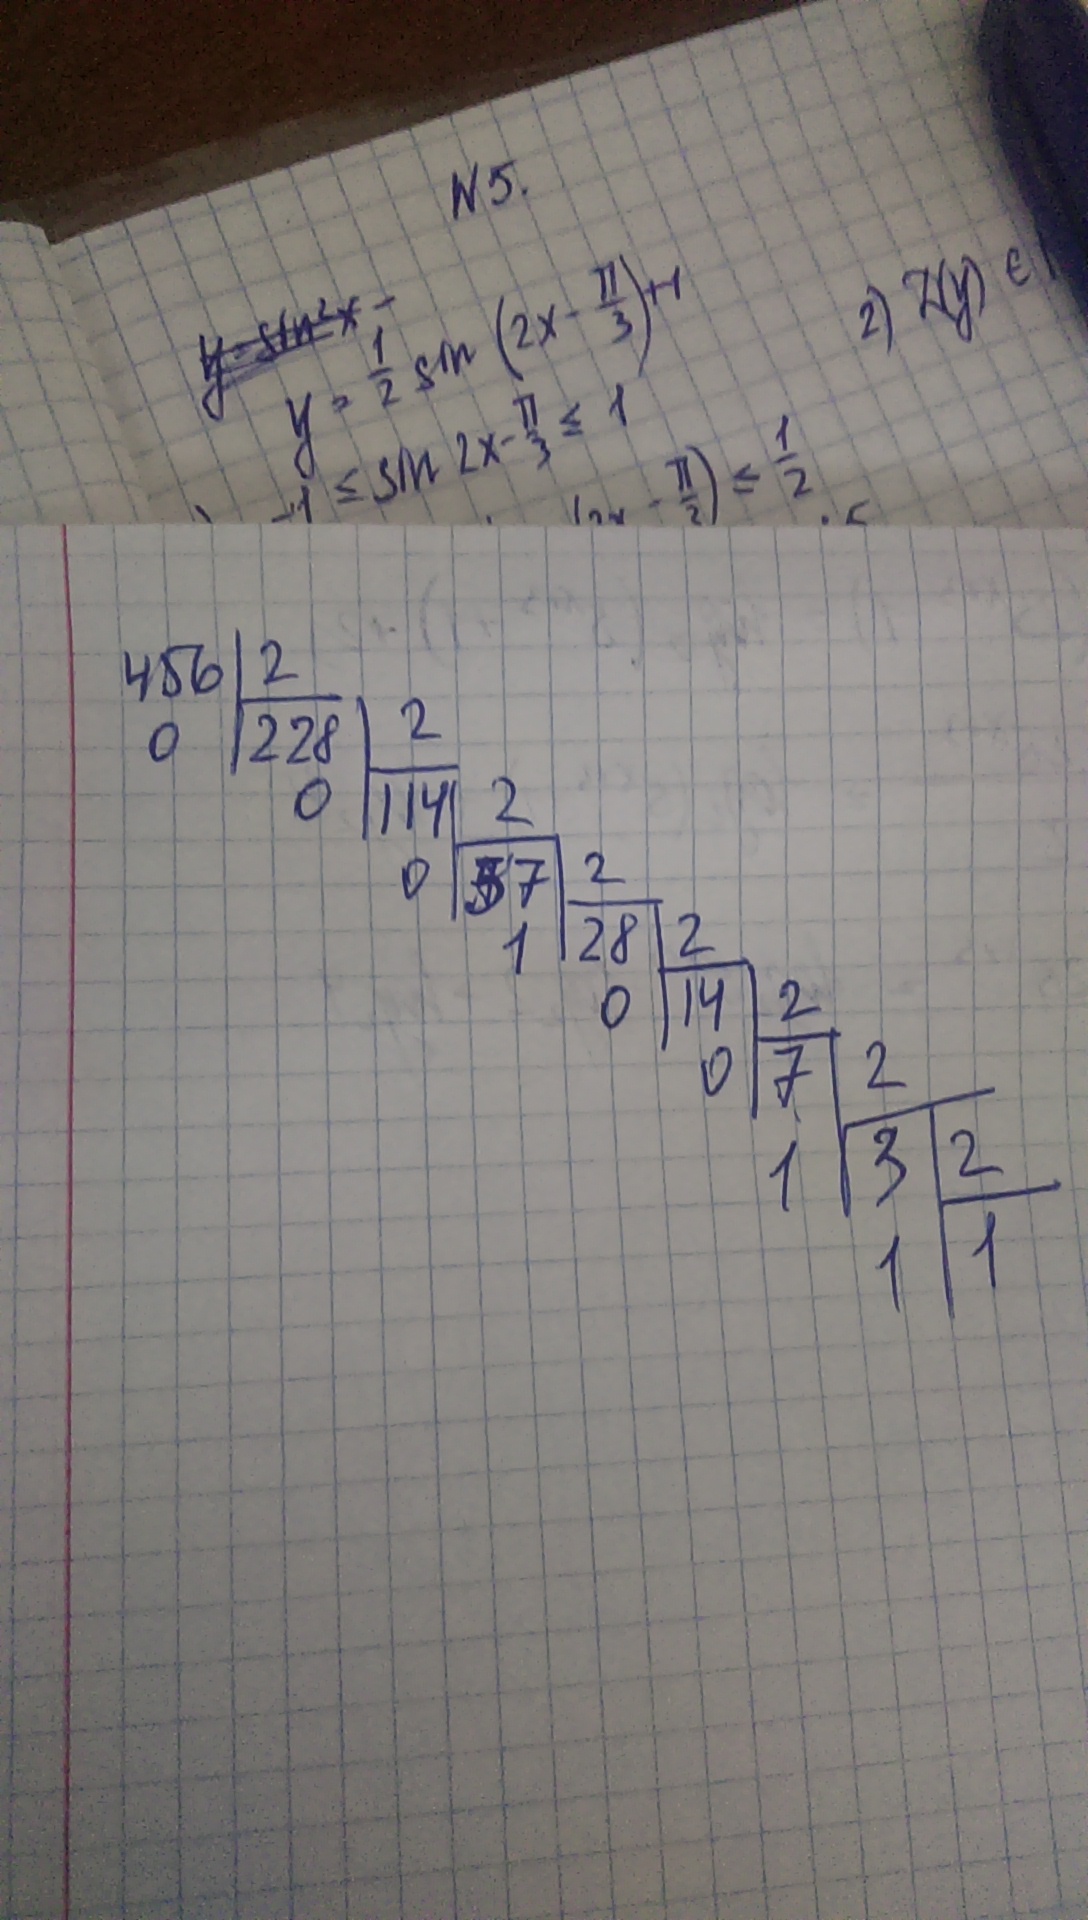 N 5.
y = 1/2 sin (2x - π/3) + 1
2) Z(y) ∈
-1 ≤ sin 2x - π/3 ≤ 1
π/3) ≤ 1/2
456 2
0 228 2
0 114 2
0 57 2
1 28 2
0 14 2
0 7 2
1 3 2
1 1